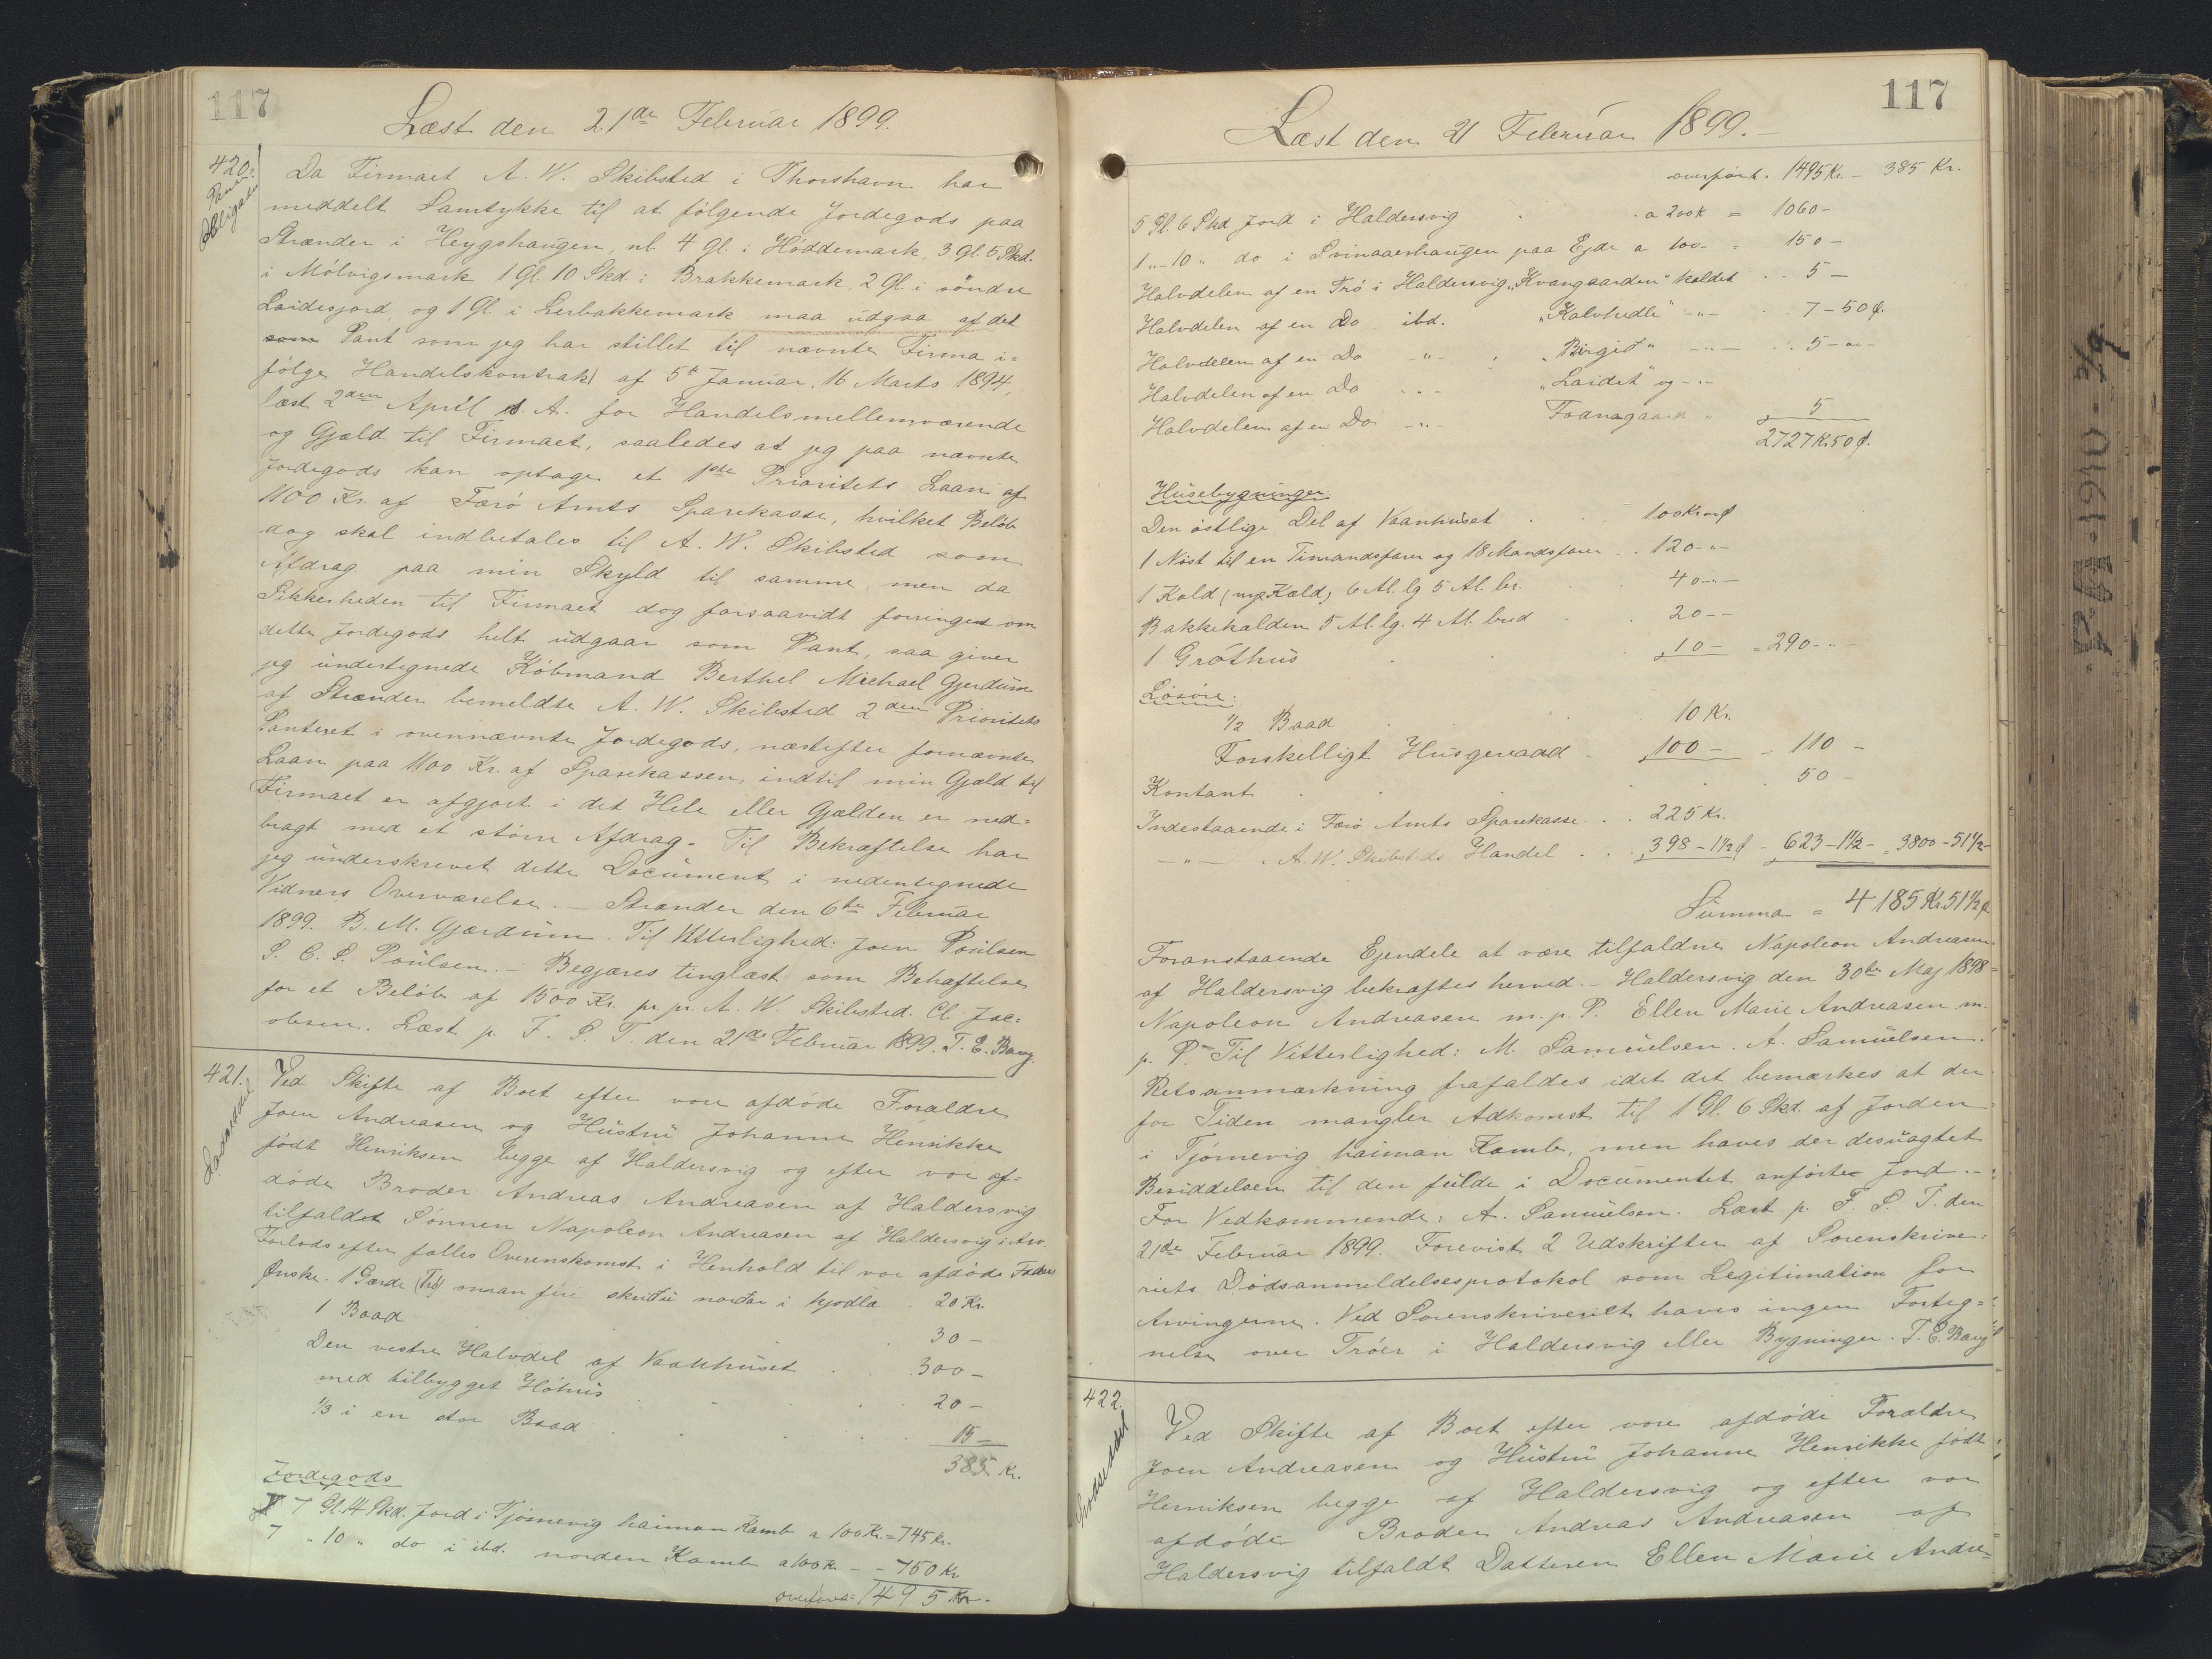 117
Læst den 21de Februar 1899.
420.
Pant
Obligation
Da Firmaet A. W. Skibsted i Thorshavn har
meddelt Samtykke til at følgende Jordegods paa
Strænder i Heygshaugen, nl. 4 Gl. i Høddemark, 3 Gl. 5 Skd.
i Mólvigsmark 1 Gl. 10 Skd. i Brakkemark, 2 Gl. i söndre
Laidesjord, og 1 Gl. i Lerbakkemark maa udgaa af det
som Pant som jeg har stillet til nævnte Firma i=
følge Handelskontrakt af 5te Januar, 16 Marts 1894,
læst 2den April s. A. for Handelsmellemværende
og Gjæld til Firmaet, saaledes at jeg paa nævnte
Jordegods kan optage et 1ste Prioritets Laan af
1100 Kr. af Færø Amts Sparekasse, hvilket Beløb
dog skal indbetales til A. W. Skibsted som
Afdrag paa min Skyld til samme, men da
Sikkerheden til Firmaet dog forsaavidt forringes om
dette Jordegods helt udgaar som Pant, saa giver
jeg undertegnede Købmand Berthel Michael Gjerdum
af Strænder bemeldte A. W. Skibsted 2den Prioritets
Panteret i ovennævnte Jordegods, næstefter fornævnte
Laan paa 1100 Kr. af Sparekassen, indtil min Gjæld til
Firmaet er afgjort i det Hele eller Gjælden er ned=
bragt med et større Afdrag. Til Bekræftelse har
jeg underskrevet dette Document i nedentegnede
Vidners Overværelse. — Strænder den 6te Februar
1899. B. M. Gjærdum. Til Vitterlighed: Joen Poulsen
S. C. S. Poulsen. — Begjæres tinglæst som Behæftelse
for et Beløb af 1500 Kr. pr. pr. A. W. Skibsted. Cl. Jac=
obsen. Læst p. F. S. T. den 21de Februar 1899. T. E. Barg.
421.
Ved Skifte af Boet efter vore afdøde Forældre
Joen Andreasen og Hustru Johanne Henrikke
født Henriksen begge af Haldersvig og efter vor af=
døde Broder Andreas Andreasen af Haldersvig
tilfaldt Sønnen Napoleon Andreasen af Haldersvig i Arv.
Forlods efter fælles Overenskomst i Henhold til vor afdøde Faders
Ønske. 1 Gærde (Trö) oman firi skridu nordar i kjodla . 20 Kr.
1 Baad 30 —
Den vestre Halvdel af Vaanhuset . . 300 —
med tilbygget Höhus . . . 20 —
1/3 i en stor Baad . . . 15 —
385 Kr.
Jordegods
7 Gl. 14 Skd. Jord i Tjørnevig haiman Kamb a 100 Kr. = 745 Kr.
7 " 10 " do i ibd. norden Kamb a 100 Kr. — = 750 Kr.
overføres: 1495 Kr. —
117
Læst den 21 Februar 1899. —
overført. 1495 Kr. — 385 Kr.
5 Gl. 6 Skd Jord i Haldersvig . . a 200 K = 1060 —
1 " — 10 " do i Svinaaerhaugen paa Ejde a 100 — = 150 —
Halvdelen af en Trö i Haldersvig "Kvangaarden" kaldet . . 5 —
Halvdelen af en Do ibd. "Kalvhedle" — " — . . 7 — 50 Ø.
Halvdelen af en Do — " — "Birgid" — " — . . 5 — " —
Halvdelen af en Do — " — "Laidet" og — " —
Halvdelen af en Do — " — Fodnagaard " 5
2727 Kr. 50 Ø.
Husebygninger:
Den østlige Del af Vaanhuset . . 100 Kr " Ø
1 Nöst til en Timandsfarer og 18 Mandsfarer . . 120 — " —
1 Kald (nye Kæld) 6 Al. lg 5 Al. br. . 40 — " —
Bakkekælden 5 Al. lg. 4 Al. bred . . 20 — —
1 Gróthus . . . 10 — = 290 — " —
Løsøre:
1/2 Baad . . 10 Kr.
Forskelligt Husgeraad . 100 — = 110 —
Kontant . . . . . 50 —
Indestaaende i Færø Amts Sparekasse . . . 225 Kr.
— " — i A. W. Skibsteds Handel . . . 398 — 1 1/2 Ø — 623 — 1 1/2 — = 3800 — 51 1/2 —
Summa = 4185 Kr. 51 1/2 Ø
Foranstaaende Ejendele at være tilfaldne Napoleon Andreasen
af Haldersvig bekræftes herved. — Haldersvig den 30te Maj 1898 =
Napoleon Andreasen m. p. P. Ellen Marie Andreasen m.
p. P. Til Vitterlighed: M. Samuelsen. A. Samuelsen.
Retsanmærkning frafaldes idet det bemærkes at der
for Tiden mangler Adkomst til 1 Gl. 6 Skd. af Jorden
i Tjørnevig haiman Kamb, men haves der desuagtet
Besiddelsen til den fulde i Documentet anførte Jord. —
For Vedkommende: A. Samuelsen. Læst p. F. S. T. den
21de Februar 1899. Forevist 2 Udskrifter af Sorenskrive=
riets Dødsanmeldelsesprotokol som Legitimation for
Arvingerne. Ved Sorenskriveriet haves ingen Forteg=
nelse over Tröer i Haldersvig eller Bygninger. T. E. Barg
422.
Lodseddel
Ved Skifte af Boet efter vore afdøde Forældre
Joen Andreasen og Hustru Johanne Henrikke født
Henriksen begge af Haldersvig og efter vor
afdøde Broder Andreas Andreasen af
Haldersvig tilfaldt Datteren Ellen Marie Andre=